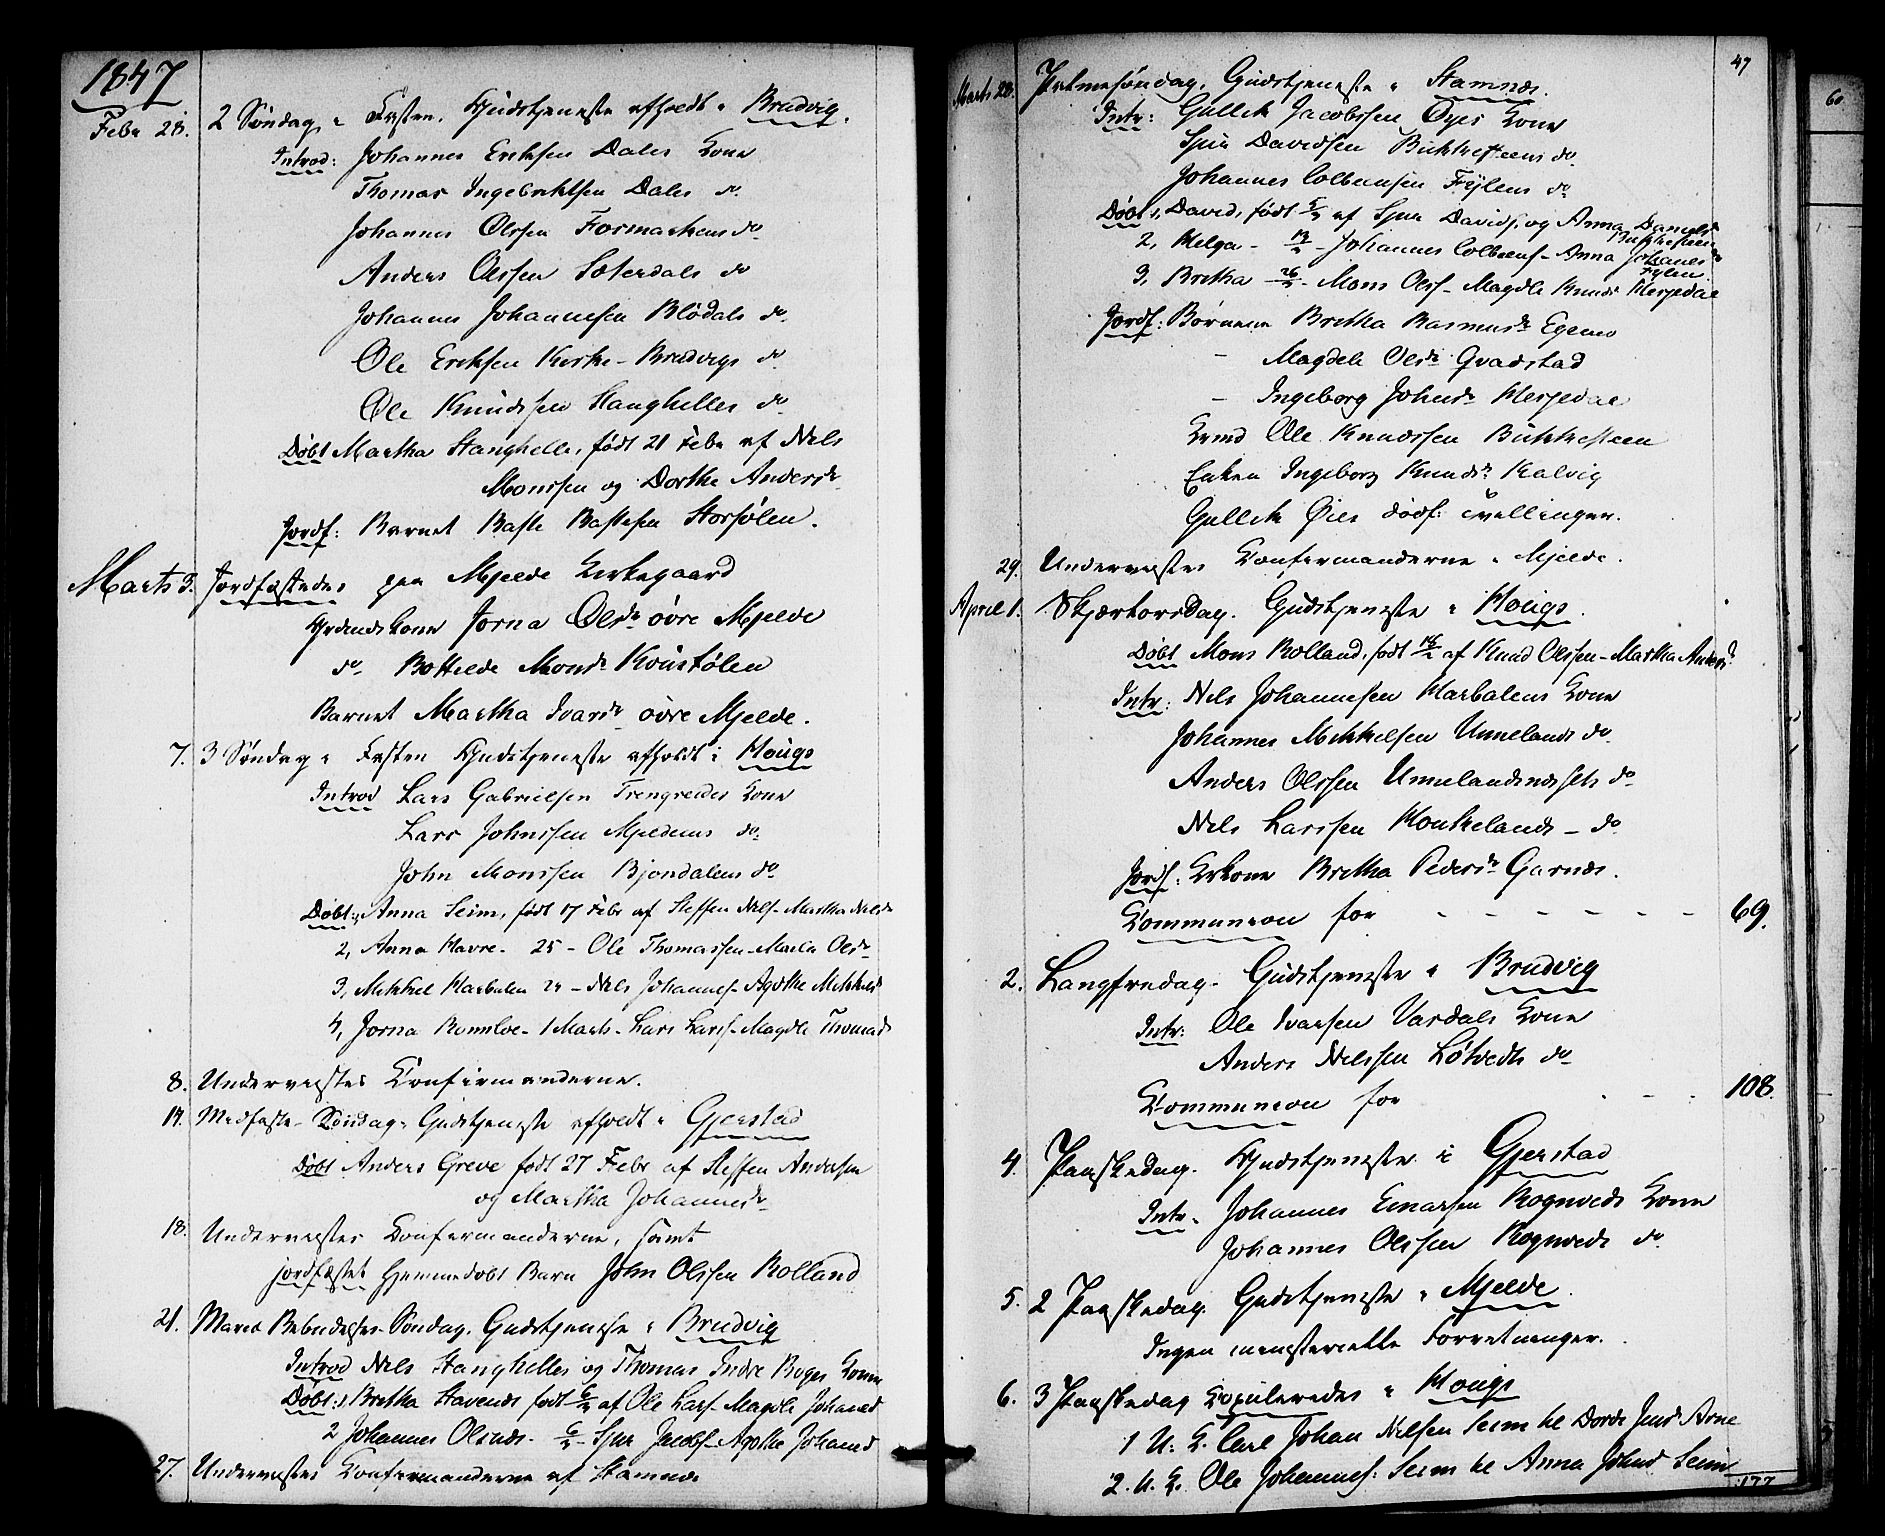 1847
Febr 28. 2 Søndag i Fasten. Gudstjeneste afholdt i Brudvig.
Introd: Johannes Eriksen Dales Kone
Thomas Ingebrictsen Dales do
Johannes Olssen Fosmarkens do
Anders Olssen Sæterdals do
Johannes Johannesen Blødals do
Ole Eriksen Kirke-Brudvigs do
Ole Knudssen Stanghelles do
Døbt Martha Stanghelle, født 21 Febr af Nels
Monssen og Dorthe Andersdr
Jordf: Barnet Baste Bastesen Storsølen.
Marts 3. Jordfæstedes paa Mjelde Kirkegaard
Kone Jorna Olsdr øvre Mjelde
do Bottelde Monsdr Koustølen
Barnet Martha Ivarsdr øvre Mjelde.
7. 3 Søndag i Fasten Gudstjeneste afholdt i Hougs
Introd Lars Gabrielsen Trengereides Kone
Lars Johnssen Mjeldens do
John Monssen Bjondalens do
Døbt: 1, Anna Seim, født 17 Febr af Steffen Nels- Martha Nelsdr
2, Anna Havre - 25 - Ole Thomassen - Marta Olsdr
3, Mikkel Harbalen - Nels Johannes- Agothe Mikkelsd
4, Jorna - 1 Marts - Lars Larss- Magdle Thomasd
8. Undervistes Confirmanderne.
14. Midfaste-Søndag. Gudstjeneste afholdt i Gjerstad
Døbt Anders Greve født 27 Febr af Steffen Andersen
og Martha Johannesdr
18. Undervistes Confirmanderne, samt
jordfæstet hjemmedøbt Barn John Olssen Rolland
21. Mariæ Bebudelses-Søndag. Gudstjeneste i Brudvig
Introd Nels Stanghelles og Thomas Indre Boges Koner
Døbt: 1, Bretha Stavenes født af Ole Larss- Magdle Johannesd
2 Johannes Olsnes. - Sjur Jacobs- Agothe Johannesd
27. Undervistes Confirmanderne af Stamnæs
47
Marts 28. Palmesøndag. Gudstjeneste i Stamnæs.
Intr: Gullik Jacobssen Øyes Kone
Sjur Davidsen Bukkesteens do
Johannes Colbeinsen Fylens do
Døbt 1, David, født 5/2 af Sjur Davids. og Anna Danielsdr
Bukkesteen
2, Helga - Johannes Colbeins- Anna Johannesdr
Fylen
3, Bretha - Mons Olss- Magdle Knudsdr Herjedal
Jordf: Børnene Bretha Rasmusdr Egemo
- Magdele Olsdr Qvadstad
- Ingeborg Johnsdr Herjedal
Ole Knudssen Bukkesteen
Enken Ingeborg Knudsdr Kalvig
Gullik Øies dødf: tvillinger.
29. Undervistes Confirmanderne i Mjelde.
April 1. Skjærtorsdag. Gudstjeneste i Hougs.
Døbt Mons Rolland, født af Knud Olssen - Martha Andersd
Intr: Nels Johannesen Harbalens Kone
Johannes Mikkelsen Unnelands do
Anders Olssen Unnelandsnesets do
Nels Larssen Houkelands - do
Jordf: Kone Bretha Pedersdr Garnæs.
Communion for - - - - - - 69.
2. Langfredag. Gudstjeneste i Brudvig
Intr: Ole Ivarsen Vardals Kone
Anders Nelssen Løtvedts do
Communion for - - 108.
4. Paaskedag. Gudstjeneste i Gjerstad
Intr. Johannes Einarsen Rognveds Kone
Johannes Olssen Rognveds do
5. 2 Paaskedag. Gudstjeneste i Mjelde.
Ingen ministerielle Forretninger.
6. 3 Paaskedag Copuleredes i Hougs
1 U: K. Carl Johan Nelsen Seim til Dorde Arne
2. U. K. Ole Johannes: Seim til Anna Johnsd Seim
177